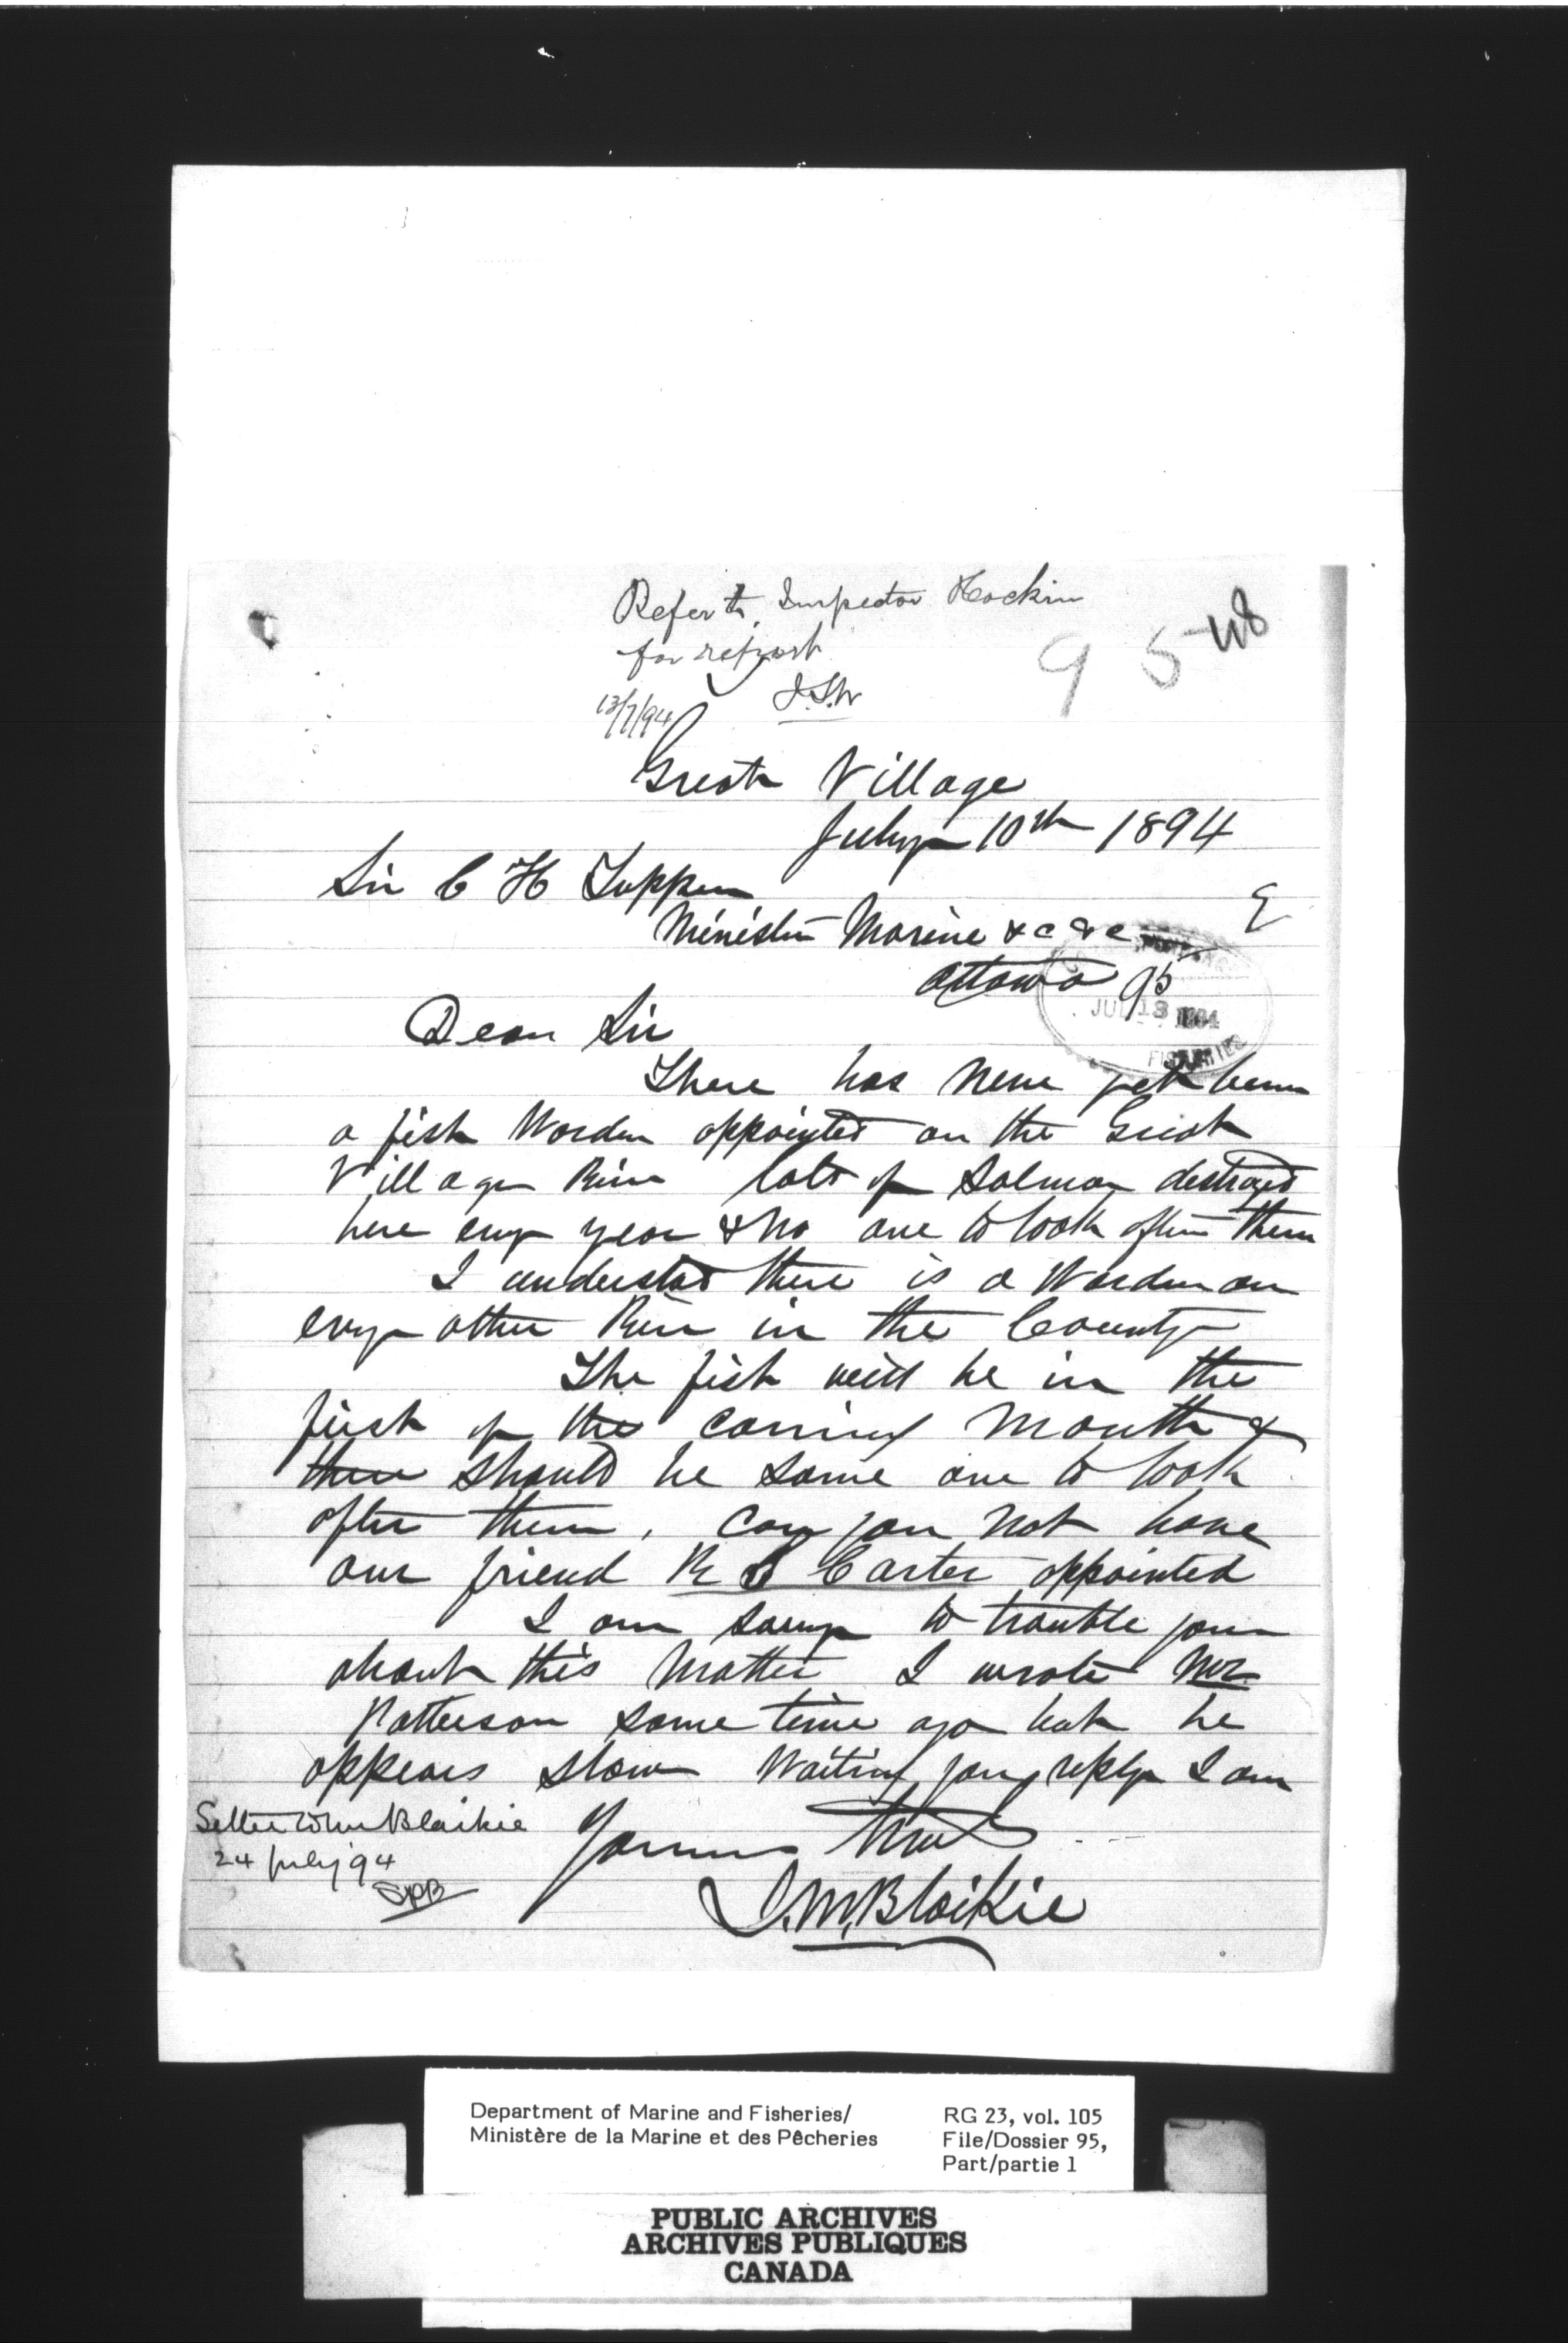 Refer to Inspector Hockin
for report
J.S.W
13/7/94
95
Great Village
July 10th 1894
Sir C H Tupper
Minister Marine &c &c
Ottawa
95
JUL 13 1894
FISHERIES
Dear Sir
There has never yet been
a fish Warden appointed on the Great
Village River lots of Salmon destroyed
here every year & no one to look after them
I understand there is a Warden on
every other River in the County
The fish will be in the
first of the coming month &
there should be some one to look
after them, can you not have
our friend R S Carter appointed
I am sorry to trouble you
about this matter I wrote Mr
Patterson some time ago but he
appears slow Waiting your reply I am
Yours truly
J.M. Blaikie
Letter to Wm Blaikie
24 July 94
SPB
Department of Marine and Fisheries/
Ministère de la Marine et des Pêcheries
RG 23, vol. 105
File/Dossier 95,
Part/partie 1
PUBLIC ARCHIVES
ARCHIVES PUBLIQUES
CANADA